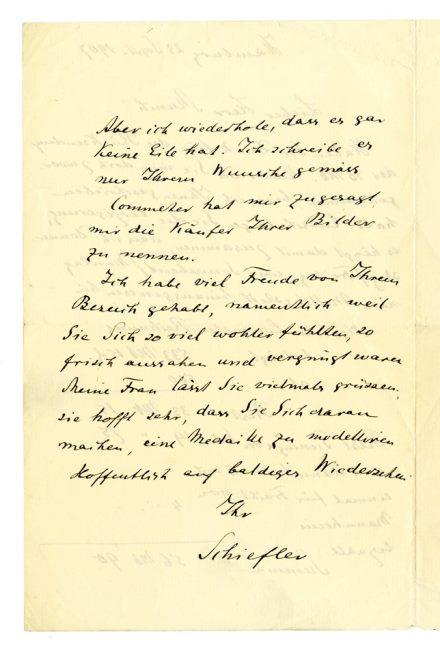 Aber ich wiederhole, dass es gar
keine Eile hat. Ich schreibe es
nur Ihrem Wunsche gemäss
Commeter hat mir zugesagt
mir die Käufer Ihrer Bilder
zu nennen.
Ich habe viel Freude von Ihrem
Besuch gehabt, namentlich weil
Sie Sich so viel wohler fühlten, so
frisch aussahen und vergnügt waren
Meine Frau lässt Sie vielmals grüssen,
sie hofft sehr, dass Sie Sich daran
machen, eine Medaille zu modellieren
Hoffentlich auf baldiges Wiedersehen
Ihr
Schiefler